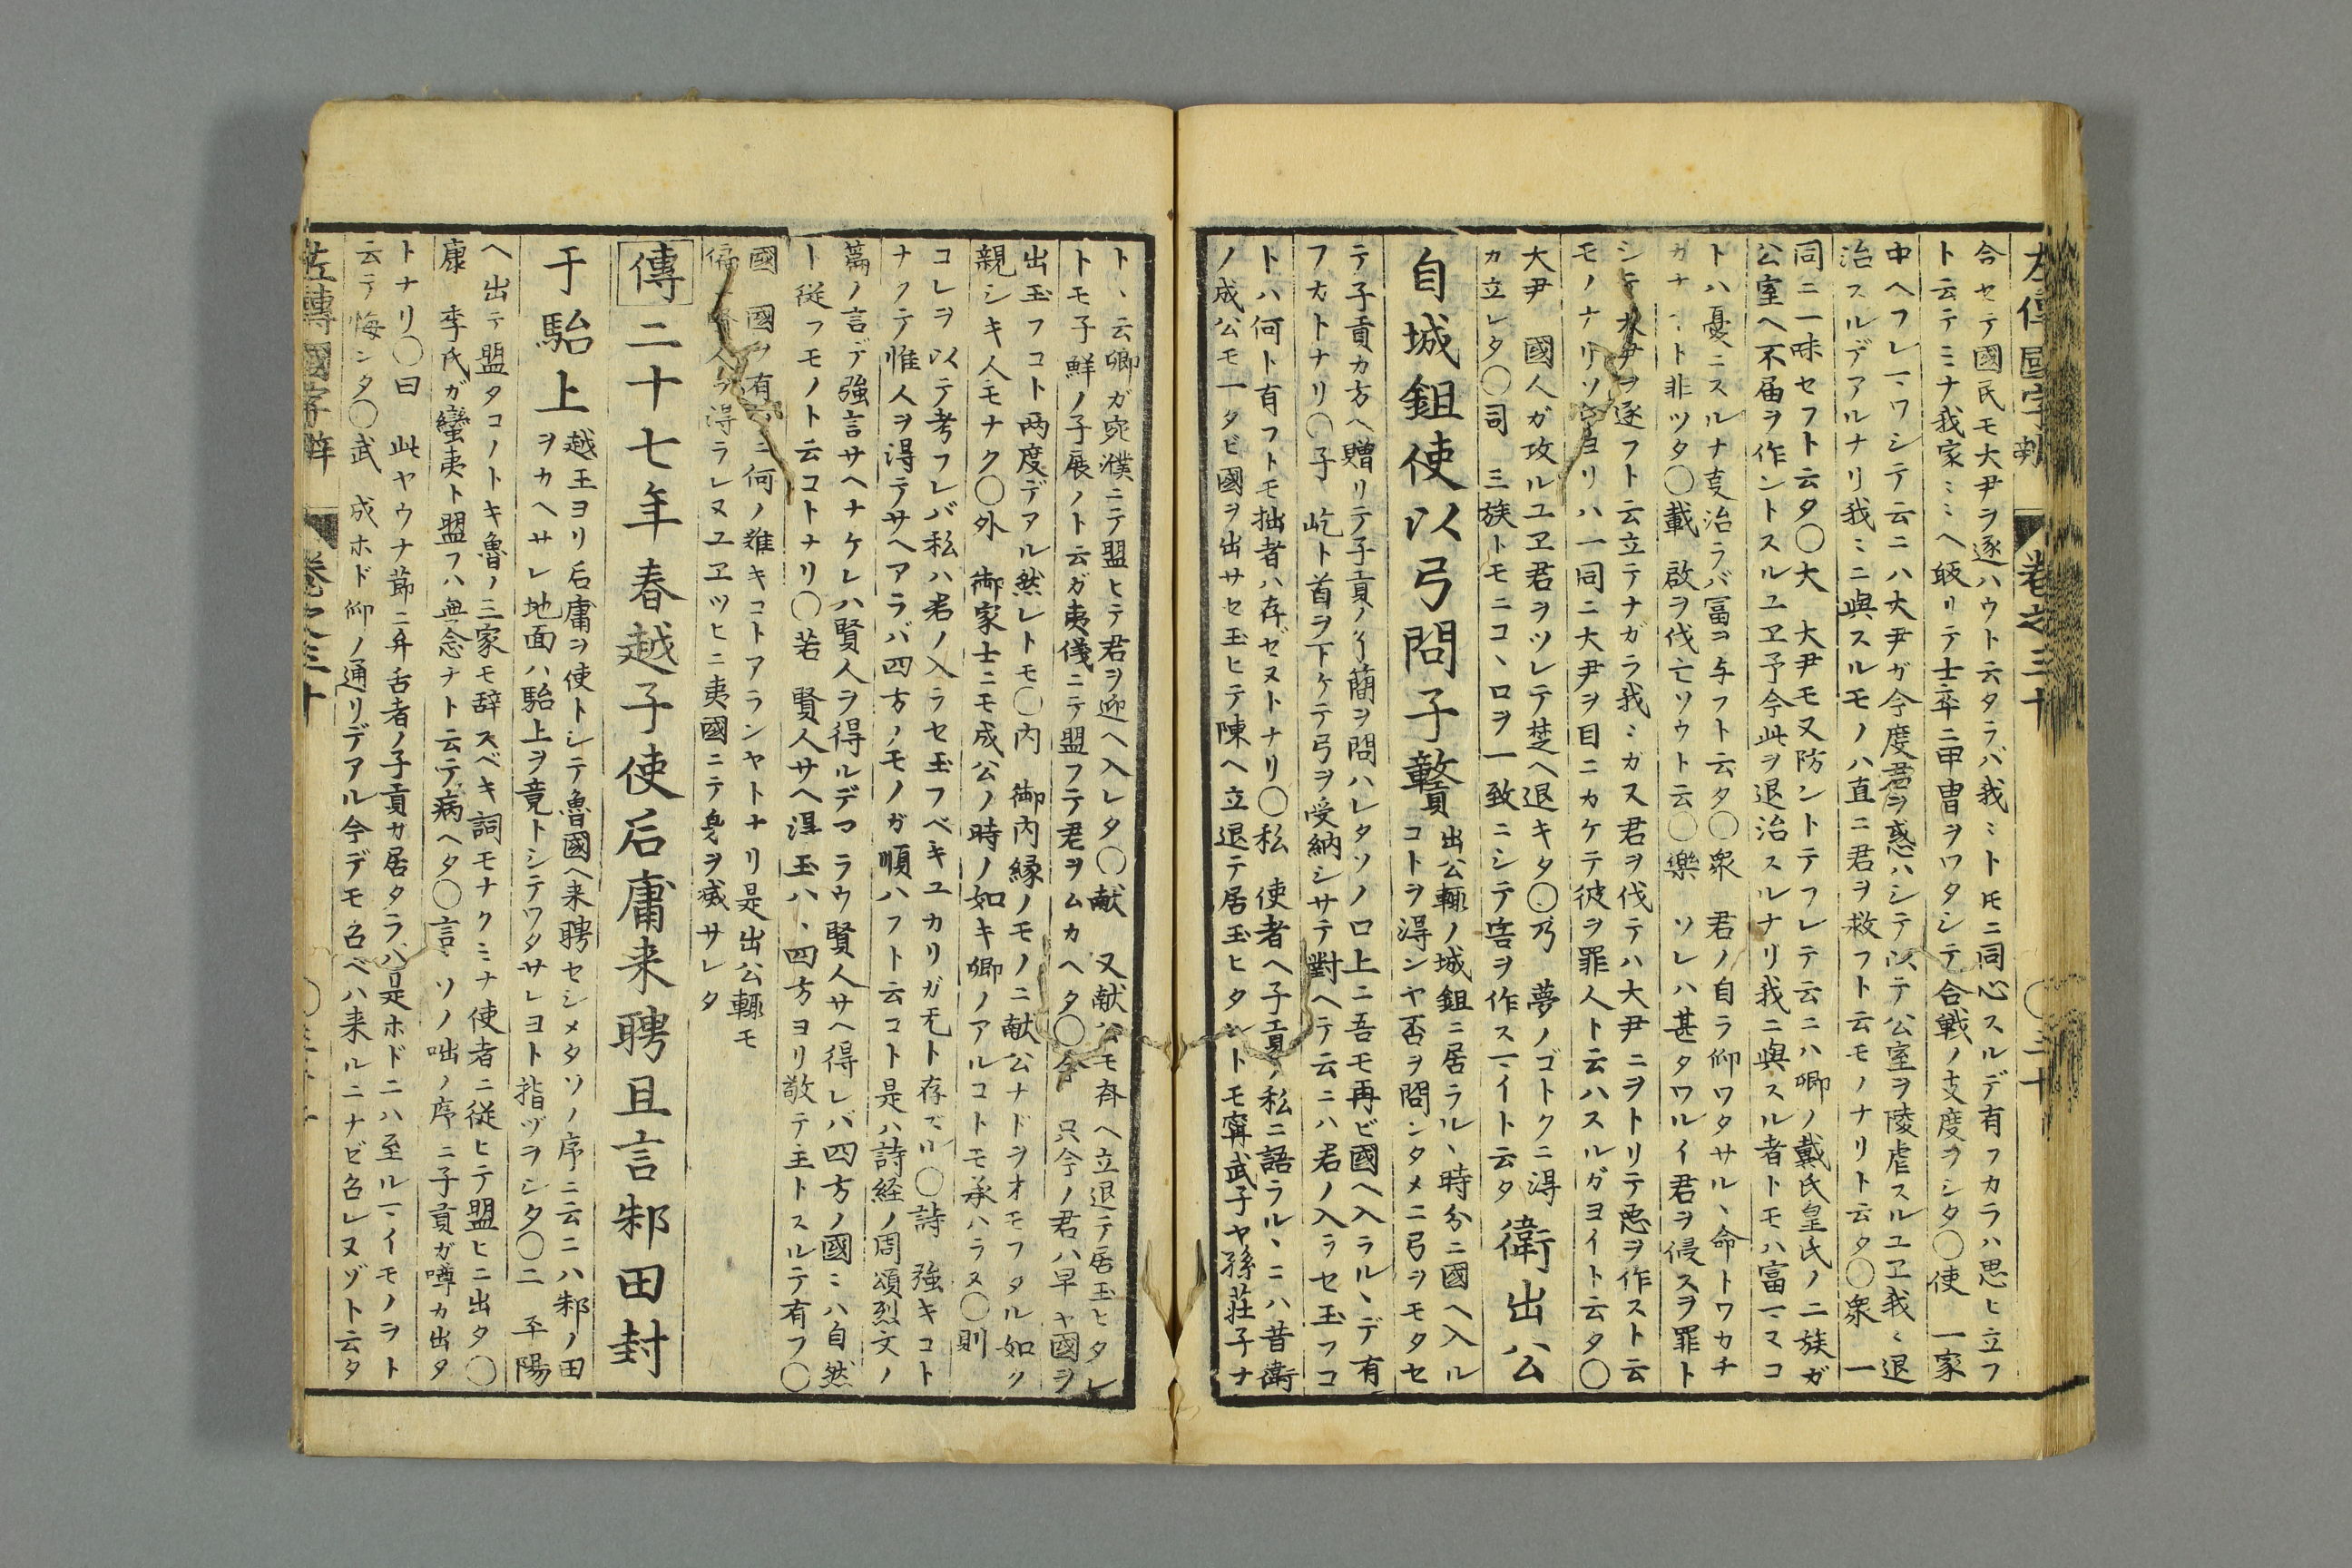 左傳國字解 巻之三十 〇三十
合セテ國民モ大尹ヲ逐ハウト云タラバ我〻ト氏ニ同心スルデ有フカラハ思ヒ立フ
ト云テミナ我家〻〻ヘ皈リテ士卒ニ甲冑ヲワタシテ合戦ノ支度ヲシタ〇使 一家
中ヘフレヿワシテ云ニハ大尹ガ今度君ヲ惑ハシテ以テ公室ヲ陵虐スルユヱ我〻退
治スルデアルナリ我〻ニ與スルモノハ直ニ君ヲ救フト云モノナリト云タ〇衆 一
同ニ一味セフト云タ〇大 大尹モ又防ントテフレテ云ニハ卿ノ戴氏皇氏ノ二族ガ
公室ヘ不届ヲ作ントスルユヱ予今此ヲ退治スルナリ我ニ與スル者トモハ富ヿマコ
トハ憂ニスルナ吏治ラバ冨ヲ与フト云タ〇衆 君ノ自ラ仰ワタサル、命トワカチ
ガナヿト非ツタ〇載 啟ヲ伐亡ソウト云〇樂 ソレハ甚タワルイ君ヲ侵スヲ罪ト
シテ大尹ヲ逐フト云立テナガラ我〻カス君ヲ伐テハ大尹ニヲトリテ悪ヲ作スト云
モノナリソレヨリハ一同ニ大尹ヲ目ニカケテ彼ヲ罪人ト云ハスルガヨイト云タ〇
大尹 國人ガ攻ルユヱ君ヲツレテ楚ヘ退キタ〇乃 夢ノゴトクニ得
カ立レタ〇司 三族トモニコ、ロヲ一致ニシテ害ヲ作スヿイト云タ 衛出公
自城鉏使以弓問子贛 出公輒ノ城鉏ニ居ラル、時分ニ國ヘ入ル
コトヲ得ンヤ否ヲ問ンタメニ弓ヲモタセ
テ子貢カ方ヘ贈リテ子貢ノ了簡ヲ問ハレタソノ口上ニ吾モ再ビ國ヘ入ラル、デ有
フカトナリ〇子 屹ト首ヲ下ケテ弓ヲ受納シサテ對ヘテ云ニハ君ノ入ラセ玉フコ
トハ何ト有フトモ拙者ハ存ゼヌトナリ〇私 使者ヘ子貢ノ私ニ語ラル、ニハ昔衛
ノ成公モ一タビ國ヲ出サセ玉ヒテ陳ヘ立退テ居玉ヒタレトモ甯武子ヤ孫荘子ナ
ト、云卿ガ宛濮ニテ盟ヒテ君ヲ迎ヘ入レタ〇献 又献公モ斉ヘ立退テ居玉ヒタレ
トモ子鮮ノ子展ノト云ガ夷儀ニテ盟フテ君ヲムカヘタ〇今 只今ノ君ハ早ヤ國ヲ
出玉フコト两度デアル然レトモ〇内 御内縁ノモノニ献公ナドヲオモフタル如ク
親シキ人モナク〇外 御家士ニモ成公ノ時ノ如キ卿ノアルコトモ承ハラヌ〇則
コレヲ以テ考フレバ私ハ君ノ入ラセ玉フベキユカリガ无ト存ズル〇詩 強キコト
ナクテ惟人ヲ得テサヘアラバ四方ノモノガ順ハフト云コト是ハ詩経ノ周頌烈文ノ
篇ノ言デ強言サヘナケレハ賢人ヲ得ルデアラウ賢人サヘ得レバ四方ノ國〻ハ自然
ト従フモノト云コトナリ〇若 賢人サヘ得玉ハ、四方ヨリ敬テ主トスルテ有フ〇
國 國ヲ有ツニ何ノ難キコトアランヤトナリ是出公輒モ
偏ニ賢人ヲ得ラレヌユヱツヒニ夷國ニテ身ヲ喪サレタ
傳二十七年春越子使后庸来聘且言邾田封
于駘上 越王ヨリ后庸ヲ使トシテ魯國ヘ来聘セシメタソノ序ニ云ニハ邾ノ田
ヲカヘサレ地面ハ駘上ヲ竟トシテワタサレヨト指ヅヲシタ〇二 平陽
ヘ出テ盟タコノトキ魯ノ三家モ辞スベキ詞モナクミナ使者ニ従ヒテ盟ヒニ出タ〇
康 季氏ガ蠻夷ト盟フハ無念ナト云テ病ヘタ〇言 ソノ咄ノ序ニ子貢ガ噂カ出タ
トナリ〇曰 此ヤウナ節ニ弁舌者ノ子貢カ居タラバ是ホドニハ至ルヿイモノヲト
云テ悔ンタ〇武 成ホド仰ノ通リデアル今デモ召ベハ来ルニナゼ召レヌゾト云タ
左傳國字解 巻之三十